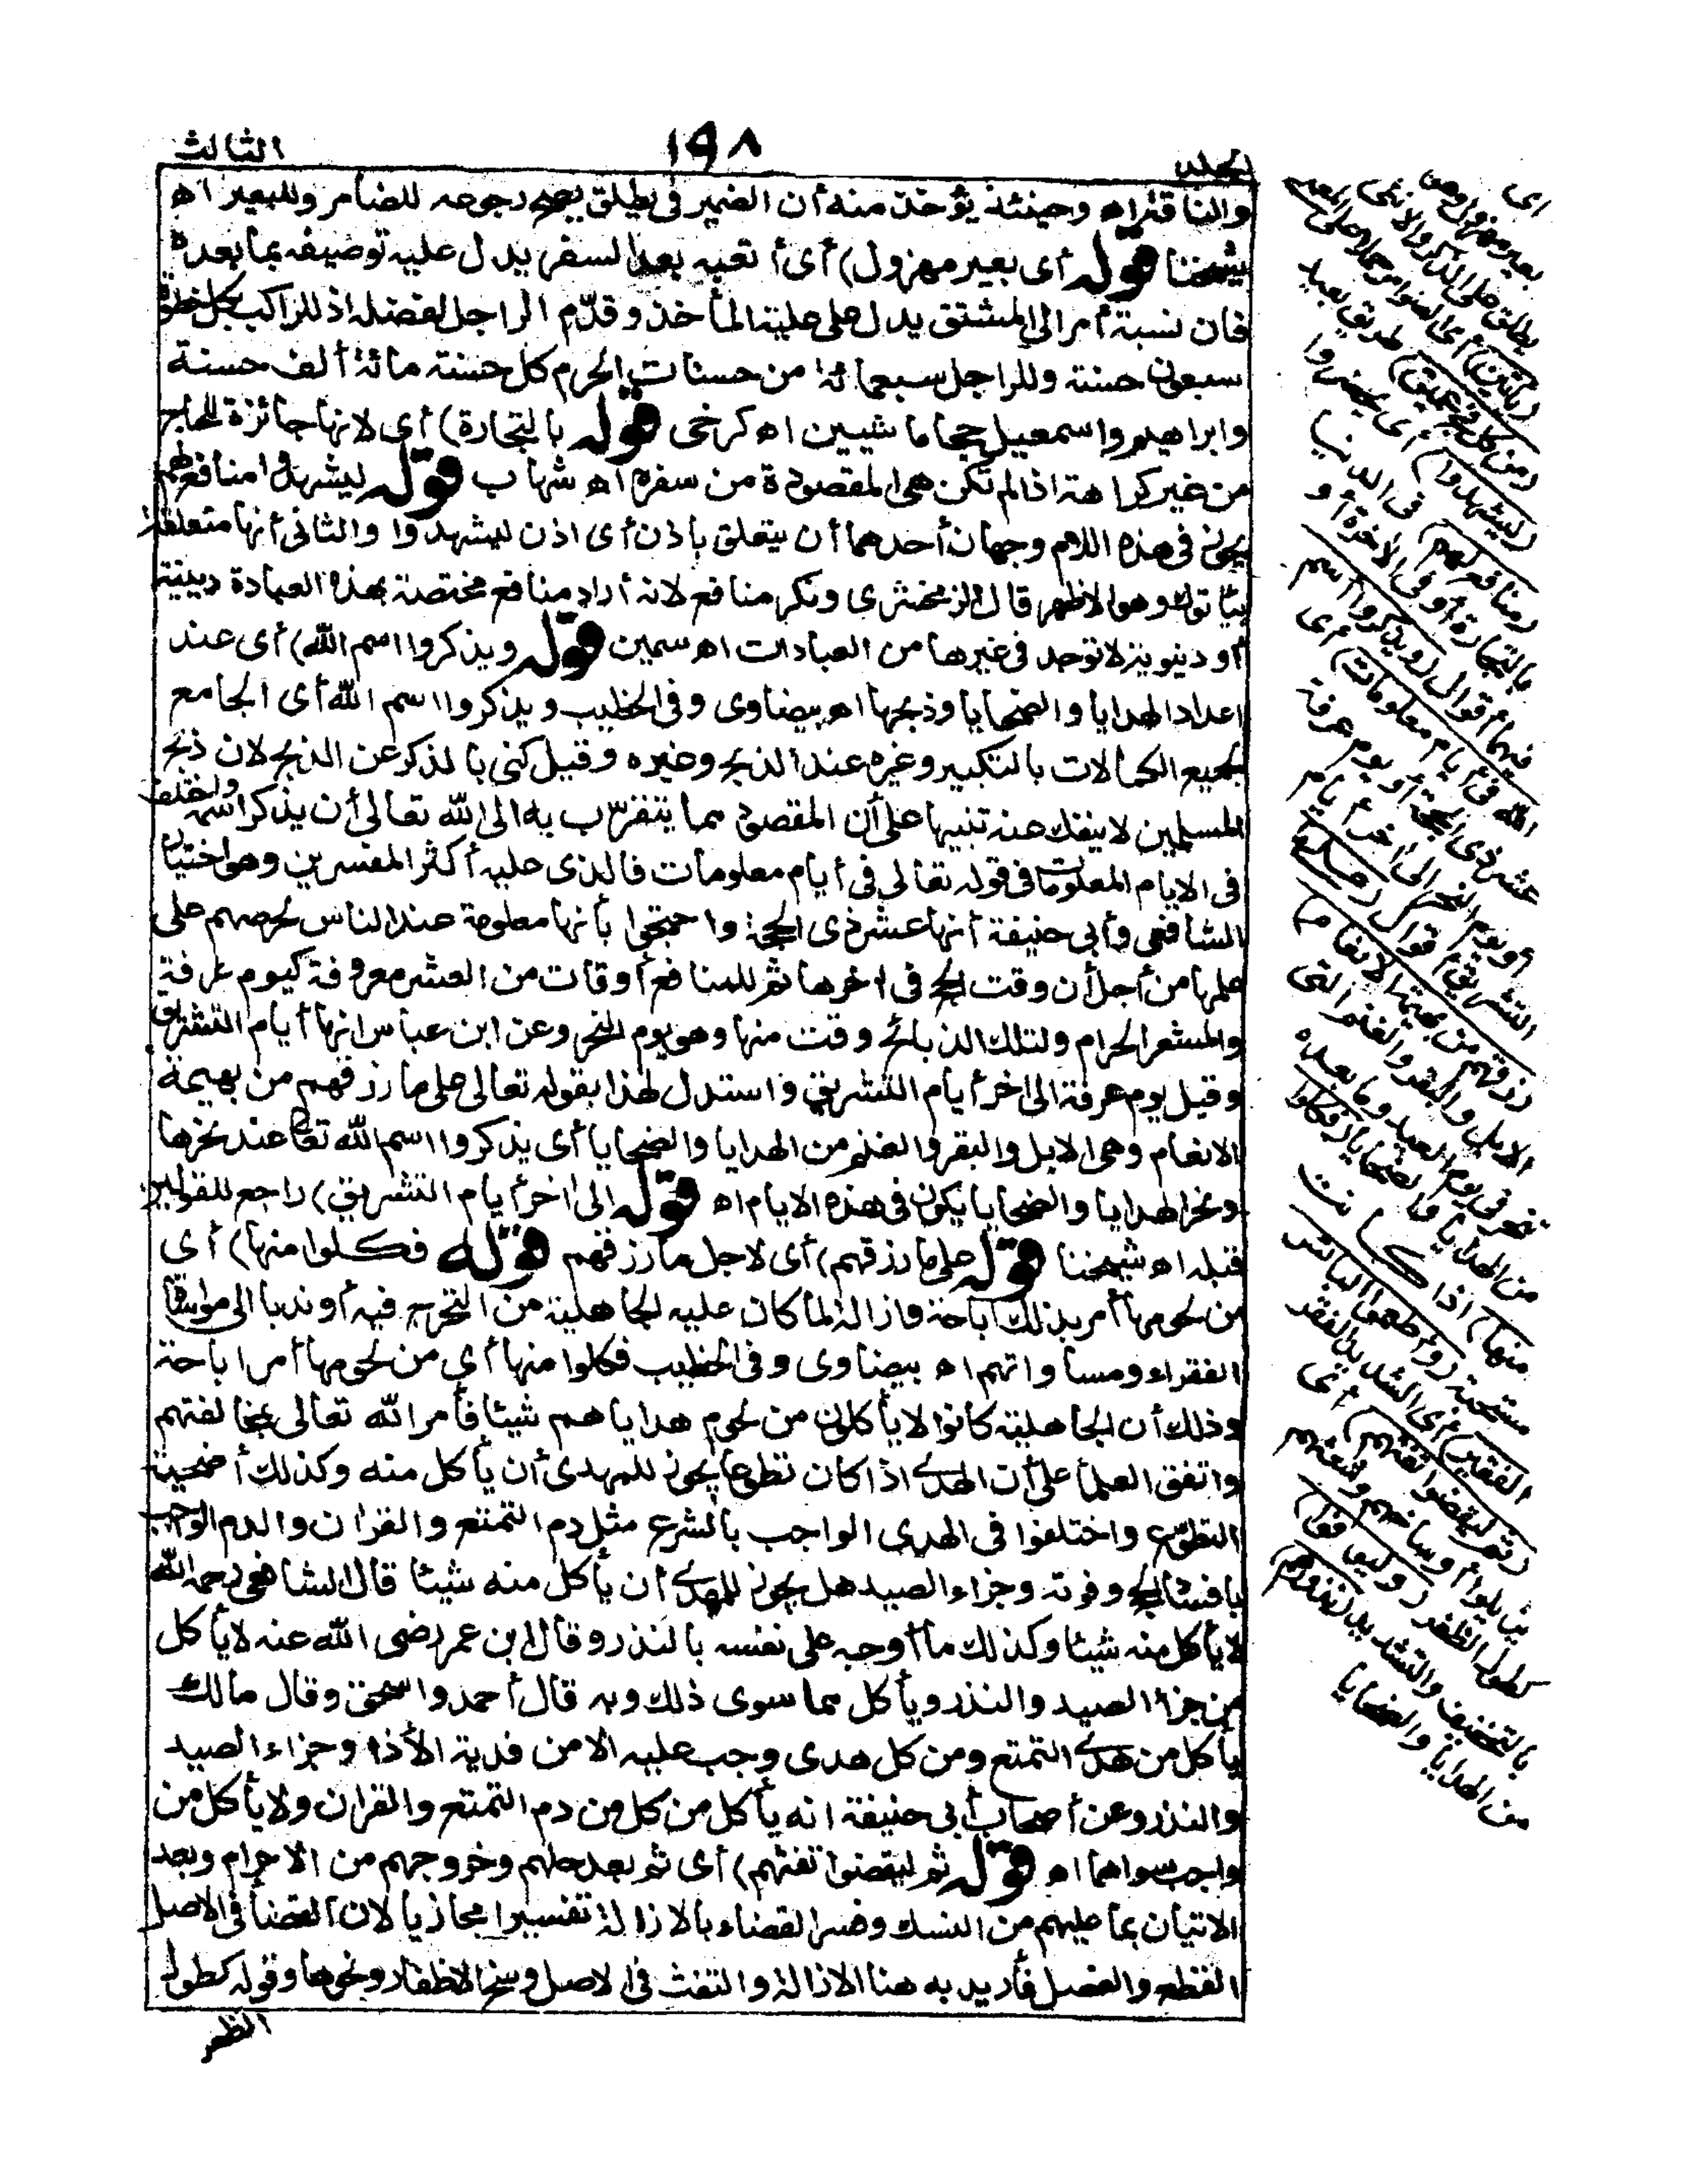 المجلد
١٩٨
الثالث
والناقة اه وحينئذ يؤخذ منه أن الضمير فى يطلق يصح رجوعه للضامر وللبعير اه
شيخنا قوله أى بعير مهزول) أى أتعبه بعد السفر يدل عليه توصيفه بما بعده
فان نسبة أمر الى المشتق يدل على علية المأخذ وقدّم الراجل لفضله اذ للراكب بكل خطوة
سبعون حسنة وللراجل سبعمائة من حسنات الحرم كل حسنة مائة ألف حسنة
وابراهيم واسمعيل حجا ماشيين اه كرخى قوله بالتجارة) أى لانها جائزة للحاج
من غير كراهة اذا لم تكن هى المقصودة من سفره اه شهاب قوله ليشهدوا منافع لهم
يجوز فى هذه اللام وجهان أحدهما أن يتعلق بأذن أى اذن ليشهدوا والثانى أنها متعلقة
بيأتوك وهو الاظهر قال الزمخشرى ونكر منافع لانه أراد منافع مختصة بهذه العبادة دينية
أو دنيوية لا توجد فى غيرها من العبادات اه سمين قوله ويذكروا اسم الله) أى عند
اعداد الهدايا والضحايا وذبحها اه بيضاوى وفى الخطيب ويذكروا اسم الله أى الجامع
لجميع الكمالات بالتكبير وغيره عند الذبح وغيره وقيل كنى بالذكر عن الذبح لان ذبح
المسلمين لا ينفك عنه تنبيها على أن المقصود مما يتقرّب به الى الله تعالى أن يذكر اسمه واختلف
فى الايام المعلومات فى قوله تعالى فى أيام معلومات فالذى عليه أكثر المفسرين وهو اختيار
الشافعى وأبى حنيفة أنها عشر ذى الحجة واحتجوا بأنها معلومة عند الناس لحرصهم على
علمها من أجل أن وقت الحج فى اخرها ثم للمنافع أوقات من العشر معروفة كيوم عرفة
والمشعر الحرام ولتلك الذبائح وقت منها وهو يوم النحر وعن ابن عباس انها أيام التشريق
وقيل يوم عرفة الى اخر أيام التشريق واستدل لهذا بقوله تعالى على ما رزقهم من بهيمة
الانعام وهى الابل والبقر والغنم من الهدايا والضحايا أى يذكروا اسم الله تعالى عند نحرها
ونحر الهدايا والضحايا يكون فى هذه الايام اه قوله الى اخر أيام التشريق) راجع للقولين
قبله اه شيخنا قوله على ما رزقهم) أى لاجل ما رزقهم قوله فكلوا منها) أى
من لحومها أمر بذلك اباحة وازالة لما كان عليه الجاهلية من التحرج فيه أو ندبا الى مواساة
الفقراء ومساواتهم اه بيضاوى وفى الخطيب فكلوا منها أى من لحومها أمر اباحة
وذلك أن الجاهلية كانوا لا يأكلون من لحوم هداياهم شيئا فأمر الله تعالى بمخالفتهم
واتفق العلمأ على أن الهدى اذا كان تطوعا يجوز للمهدى أن يأكل منه وكذلك أضحية
التطوّع واختلفوا فى الهدى الواجب بالشرع مثل دم التمتع والقران والدم الواجب
بافساد الحج وفوته وجزاء الصيد هل يجوز للمهدى أن يأكل منه شيئا قال الشافعى رحمه الله
لا يأكل منه شيئا وكذلك ما أوجبه على نفسه بالنذر وقال ابن عمر رضى الله عنه لا يأكل
من جزاء الصيد والنذر ويأكل مما سوى ذلك وبه قال أحمد واسحق وقال مالك
يأكل من هدى التمتع ومن كل هدى وجب عليه الا من فدية الأذا وجزاء الصيد
والنذر وعن أصحاب أبى حنيفة انه يأكل من كل من دم التمتع والقران ولا يأكل من
واجب سواهما اه قوله ثم ليقضوا تفثهم) أى ثم بعد حلهم وخروجهم من الاحرام وبعد
الاتيان بما عليهم من النسك وفسر القضاء بالازالة تفسيرا مجازيا لان القضأ فى الاصل
القطع والفصل فأريد به هنا الازالة والتفث فى الاصل وسخ الاظفار ونحوها وقوله كطول
الظفر
أى
بعير مهزول وهو
يطلق على الذكر والانثى
(من كل فج عميق) طريق بعيد
(ليشهدوا) أى يحضروا
(منافع لهم) فى الدنيا
بالتجارة أو فى الاخرة أو
فيهما أقوال (ويذكروا اسم
الله فى أيام معلومات) أى
عشر ذى الحجة أو يوم عرفة
أو يوم النحر الى اخر أيام
التشريق أقوال (على ما
رزقهم من بهيمة الانعام)
الابل والبقر والغنم التى
تنحر فى يوم العيد وما بعده
من الهدايا والضحايا (فكلوا
منها) اذا كانت
مستحبة (وأطعموا البائس
الفقير) أى الشديد الفقر
(ثم ليقضوا تفثهم) أى
يزيلوا أوساخهم وشعثهم
كطول الظفر (وليوفوا)
بالتخفيف والتشديد (نذورهم)
من الهدايا والضحايا